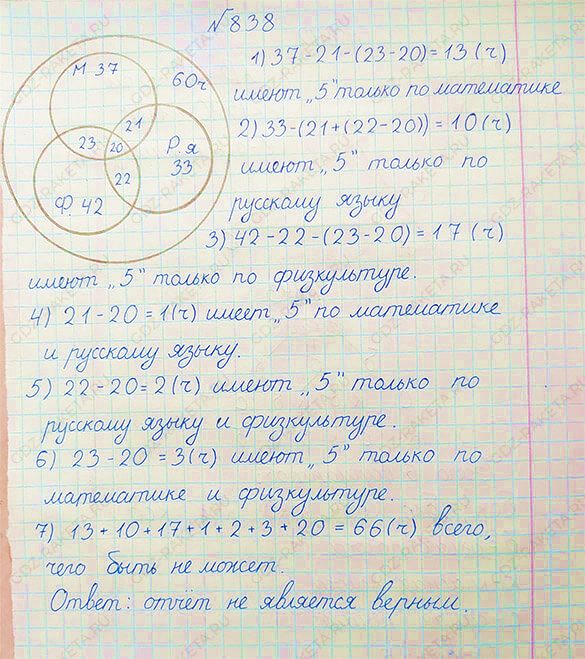 №838
М 37
60ч
21
23
20
Р.я
33
22
Ф. 42
1) 37-21-(23-20)=13(ч)
имеют „5" только по математике
2) 33-(21+(22-20))=10(ч)
имеют „5" только по
русскому языку
3) 42-22-(23-20)=17(ч)
имеют „5" только по физкультуре.
4) 21-20=1(ч) имеет „5" по математике
и русскому языку.
5) 22-20=2(ч) имеют „5" только по
русскому языку и физкультуре.
6) 23-20=3(ч) имеют „5" только по
математике и физкультуре.
7) 13+10+17+1+2+3+20=66(ч) всего,
чего быть не может.
Ответ: отчёт не является верным.
GDZ-RAKETA.RU